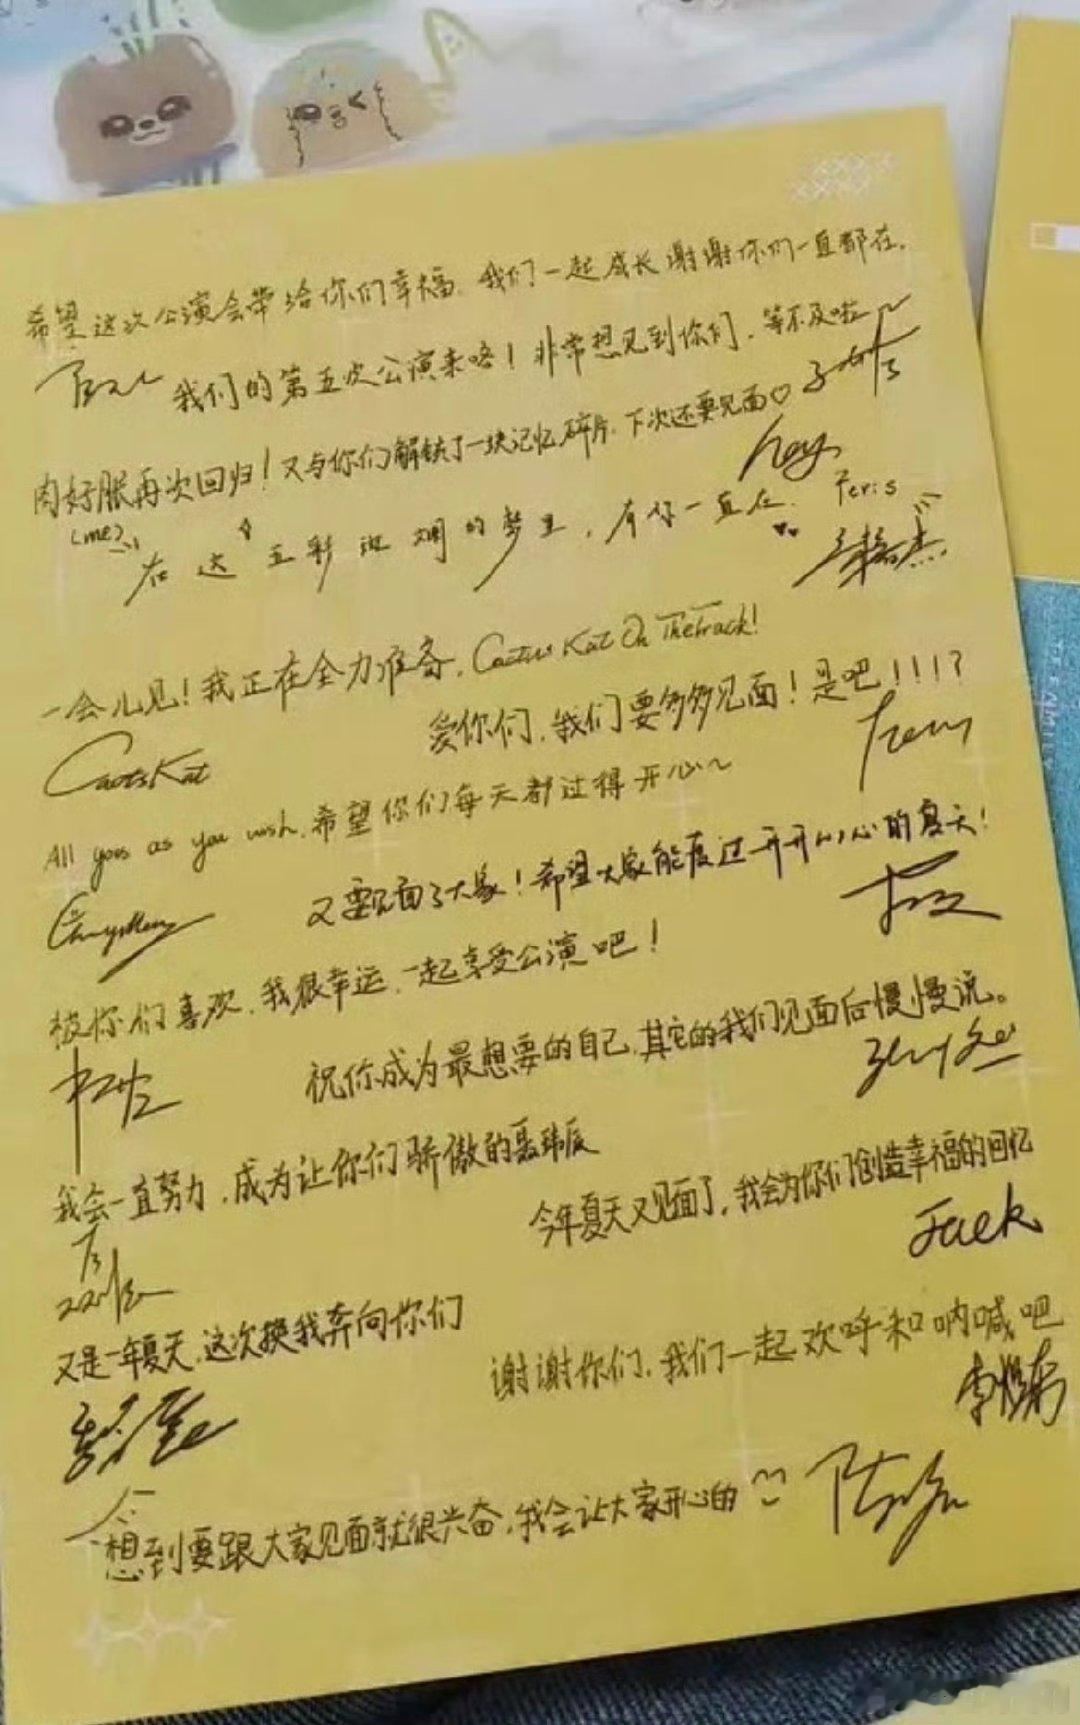 希望这次公演会带给你们幸福，我们一起成长谢谢你们一直都在.
我们的第五次公演来咯！非常想见到你们，等不及啦～
肉好胀再次回归！又与你们解锁了一块记忆碎片，下次还要见面♡
(me)
hey
在这五彩斑斓的梦里，有你一直在. Feris
一会儿见！我正在全力准备，Cactus Kat On The Track!
CactusKat
爱你们，我们要多多见面！是吧！！！？
All goes as you wish，希望你们每天都过得开心～
又要见面了大家！希望大家能度过开开心心的夏天！
被你们喜欢，我很幸运，一起享受公演吧！
祝你成为最想要的自己，其它的我们见面后慢慢说。
我会一直努力，成为让你们骄傲的聂玮辰
今年夏天又见面了，我会为你们创造幸福的回忆
Jack
又是一年夏天，这次换我奔向你们
谢谢你们，我们一起欢呼和呐喊吧
想到要跟大家见面就很兴奋，我会让大家开心的